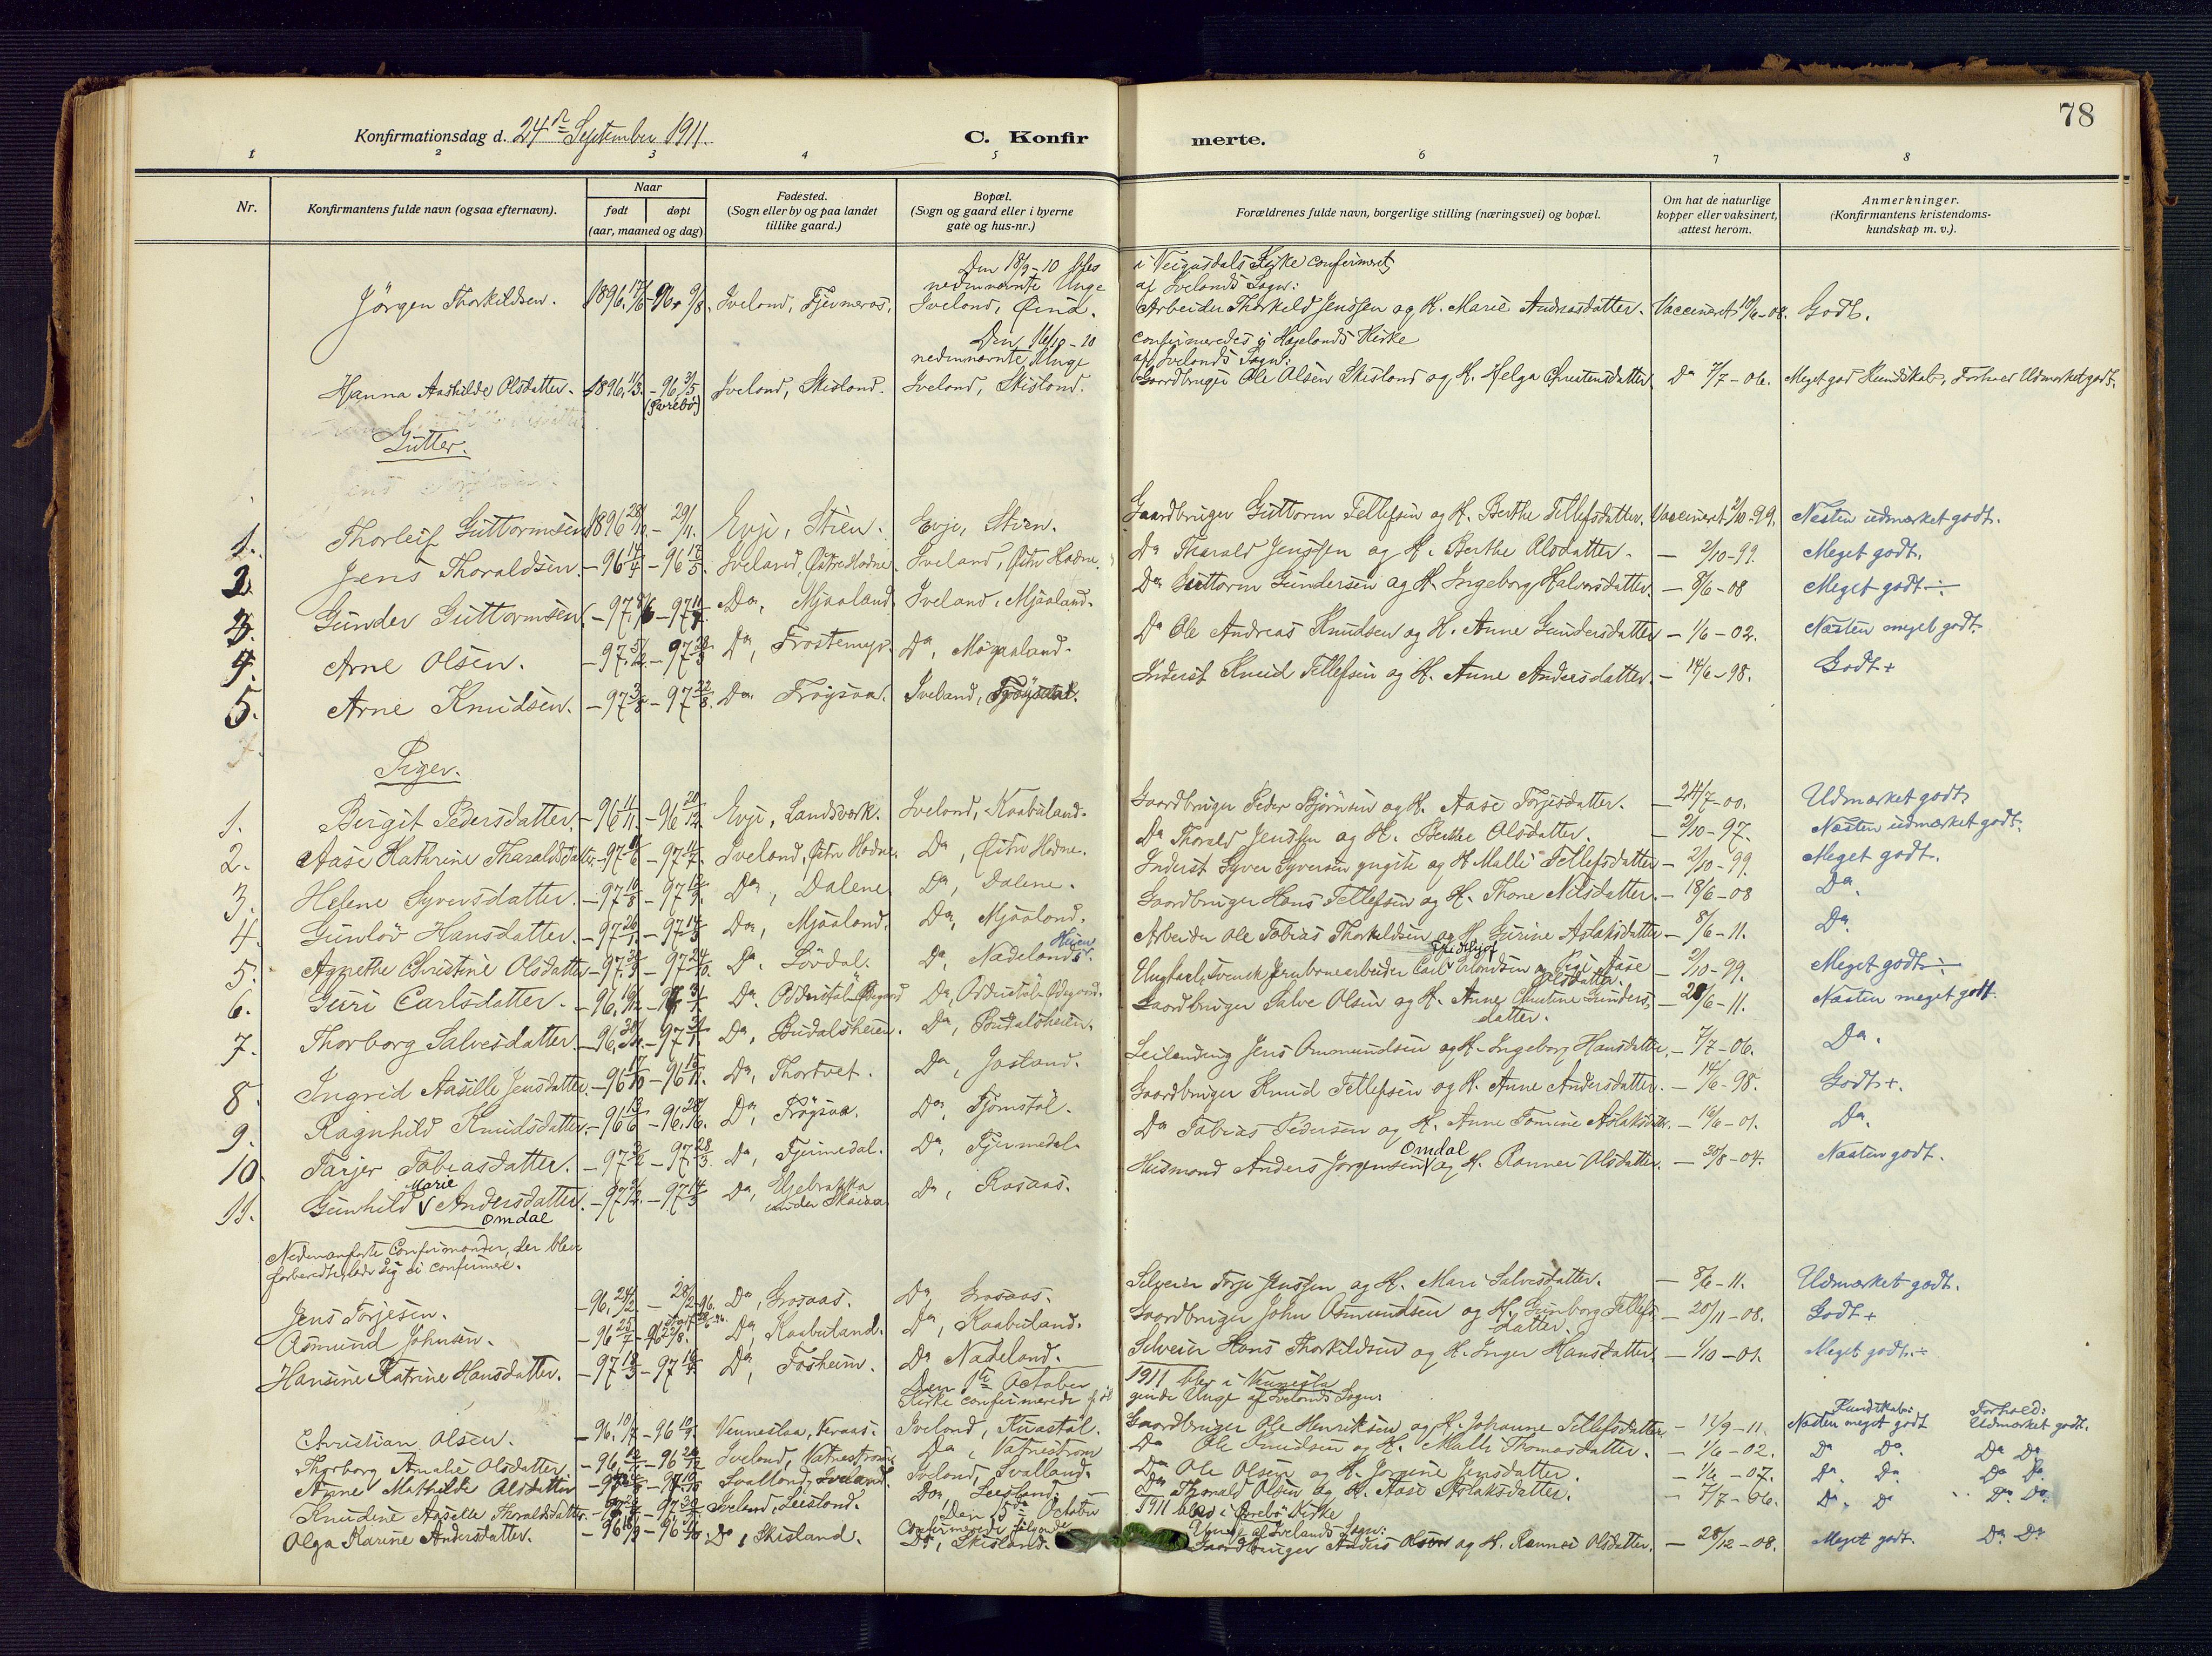 78
Konfirmationsdag d. 24de September 1911.
C. Konfirmerte.
1 2 3 4 5 6 7 8
Nr.
Konfirmantens fulde navn (ogsaa efternavn).
Naar
født døpt
(aar, maaned og dag)
Fødested.
(Sogn eller by og paa landet
tillike gaard.)
Bopæl.
(Sogn og gaard eller i byerne
gate og hus-nr.)
Forældrenes fulde navn, borgerlige stilling (næringsvei) og bopæl.
Om hat de naturlige
kopper eller vaksinert,
attest herom.
Anmerkninger.
(Konfirmantens kristendoms-
kundskap m. v.).
Den 18/9-10 i Veigusdals Kirke confirmeret
nedennævnte Unge af Ivelands Sogn:
Jörgen Thorkildsen. 1896 17/6 -96. 9/8. Iveland, Fjermeros, Iveland, Arbeider Thorkild Jenssen og H. Marie Andreasdatter. Vaccineret 10/6-08. Godt.
Den 16/10-10 confirmeredes i Hægelands Kirke
nedennævnte Unge af Ivelands Sogn:
Hanna Aashilde Olsdatter. 1896 11/3. -96 31/5. Iveland, Skisland. Iveland, Skisland. Gaardbruger Ole Olsen Skisland og H. Helga Christensdatter Do 7/7-06. Meget god Kundskab, Forhold Udmærket godt.
Gutter.
1. Thorleif Guttormsen 1896 28/10 - 29/11. Evje, Stien. Evje, Stien. Gaardbruger Guttorm Tellefsen og H. Berthe Tellefsdatter. Vaccineret 2/10-99. Næsten udmærket godt.
2. Jens Tharaldsen. -96 14/4 -96 17/5. Iveland, Østre Hodne. Iveland, Østre Hodne. Do Tharald Jenssen og H. Berthe Olsdatter. - 2/10-99. Meget godt.
3. Gunder Guttormsen. -97. 8/6 -97 11/7. Do, Mjaaland. Iveland, Mjaaland. Do Guttorm Gundersen og H. Ingeborg Halvorsdatter. - 8/6-08 Meget godt ÷
4. Arne Olsen. -97. 5/2 -97 28/3 Do, Frostemyr. Do, Mjaaland. Do Ole Andreas Knudsen og H. Anne Gundersdatter - 1/6-02. Næsten meget godt.
5. Arne Knudsen. -97 3/8 -97 22/8. Do Frøysaa. Iveland, Inderst Knud Tellefsen og H. Anne Andersdatter. - 14/6-98. Godt +
Piger.
1. Birgit Pedersdatter. -96 11/11. -96 20/12. Evje, Landsværk. Iveland, Kaabuland. Gaardbruger Peder Bjørnsen og H. Aase Torjesdatter. - 24/7-00. Udmærket godt.
2. Aase Kathrine Tharaldsdatter -97 11/6 -97 11/7. Iveland, Østre Hodne. Do, Østre Hodne. Do Tharald Jenssen og H. Berthe Olsdatter. - 2/10-97. Næsten udmærket godt.
3. Helene Syversdatter. -97 10/8 -97 12/9. Do, Dalene Do, Dalene. Inderst Syver Syversen yngste og H. Malli Tellefsdatter - 2/10-99. Meget godt.
4. Gunlöv Hansdatter. -97 26/1 -97 14/3 Do, Mjaaland. Do, Mjaaland. Gaardbruger Hans Tellefsen og H. Thone Nilsdatter. - 18/6-08 Do.
5. Agnethe Christine Olsdatter -97 30/9 - 97 24/10. Do. Lövdal. Do, Nadelands Heien. Arbeider Ole Tobias Thorkildsen og H. Gurine Aslaksdatter - 8/6-11. Do.
6. Guri Carlsdatter. -96. 19/12 -97 31/1 Do. Oddestøl Ødegaard Do, Oddestøl Ødegaard. Ungkarl, Svensk Jernbanearbeider Carl Erlandsen og Pige Aase Olsdatter. - 2/10-99. Meget godt ÷
7. Thorborg Salvesdatter. -96. 30/12. -97 31/1. Do, Budalsheien. Do, Budalsheien. Gaardbruger Salve Olsen og H. Anne Christine Gundersdatter. - 28/6-11. Næsten meget godt.
8. Ingrid Aaselle Jensdatter. -96 17/10 -96 15/11. Do, Thortvet. Do, Jasland. Leilending Jens Omundsen og H. Ingeborg Hansdatter. - 7/7-06. Do.
9. Ragnhild Knudsdatter. -96 13/6 -96. 28/6. Do, Frøysaa. Do, Tjomstøl. Gaardbruger Knud Tellefsen og H. Anne Andersdatter. - 14/6-98. Godt +.
10 Tarjer Tobiasdatter. -97 3/2 -97. 28/3. Do, Fjermedal. Do, Fjermedal. Do Tobias Pedersen og H. Anne Tomine Aslaksdatter. - 16/6-01. Do.
11. Gunhild Marie Andersdatter Omdal -97 -97 14/3 Do, under Skaiaa Do, Rosaas. Husmand Anders Jörgensen Omdal og H. Ronnei Olsdatter. - 30/8-04. Næsten godt.
Nedenanførte Confirmander, der blev
forberedte, lod sig ei confirmere.
Jens Torjesen. -96. 24/2. - 28/2 -96. Do, Grosaas. Do Grosaas. Silveier Torje Jenssen og H. Mari Salvesdatter. - 8/6-11. Udmærket godt.
Osmund Johnsen. -96 25/7 -96 23/8. Do, Kaabuland. Do, Kaabuland. Gaardbruger John Osmundsen og H. Gunborg Tellefsdatter. - 20/11-08. Godt +
Hansine Katrine Hansdatter. -97 18/3 -97 16/4. Do, Fosheim. Do Nadeland. Silveier Hans Thorkildsen og H. Inger Hansdatter. - 1/10-01. Meget godt ÷
Den 1ste October 1911 blev i Vennesla
Kirke confirmerede følgende Unge af Ivelands Sogn:
Kundskab: Forhold:
Christian Olsen. -96. 10/7 -96 10/9. Vennesla, Iveland, Gaardbruger Ole Henriksen og H. Johanne Tellefsdatter - 12/9-11. Næsten meget godt Udmærket godt.
Thorborg Amalie Olsdatter -96, -96 Iveland, Vatnestrøm. Do, Vatnestrøm Do Ole Knudsen og H. Malli Thomasdatter. - 1/6-02. Do Do. Do Do
Anne Mathilde Olsdatter -97. Svalland, Iveland. Iveland, Svalland. Do Ole Olsen og H. Jorgine Jensdatter. - 1/6-07. Do. Do. Do Do.
Knudine Aaselle Tharaldsdatter. Iveland, Leesland. Do, Leesland. Do Tharald Olsen og H. Aase Aslaksdatter. - 7/7-06. Do. Do Do. Do.
Den 15de October 1911 blev i Kirke
confirmerede følgende Unge af Ivelands Sogn:
Olga Karine Andersdatter. -96 -96 Do, Skisland. Do, Skisland. Gaardbruger Anders Olsen og H. Ronnei Olsdatter. - 28/12-08. Meget godt. Do. Do